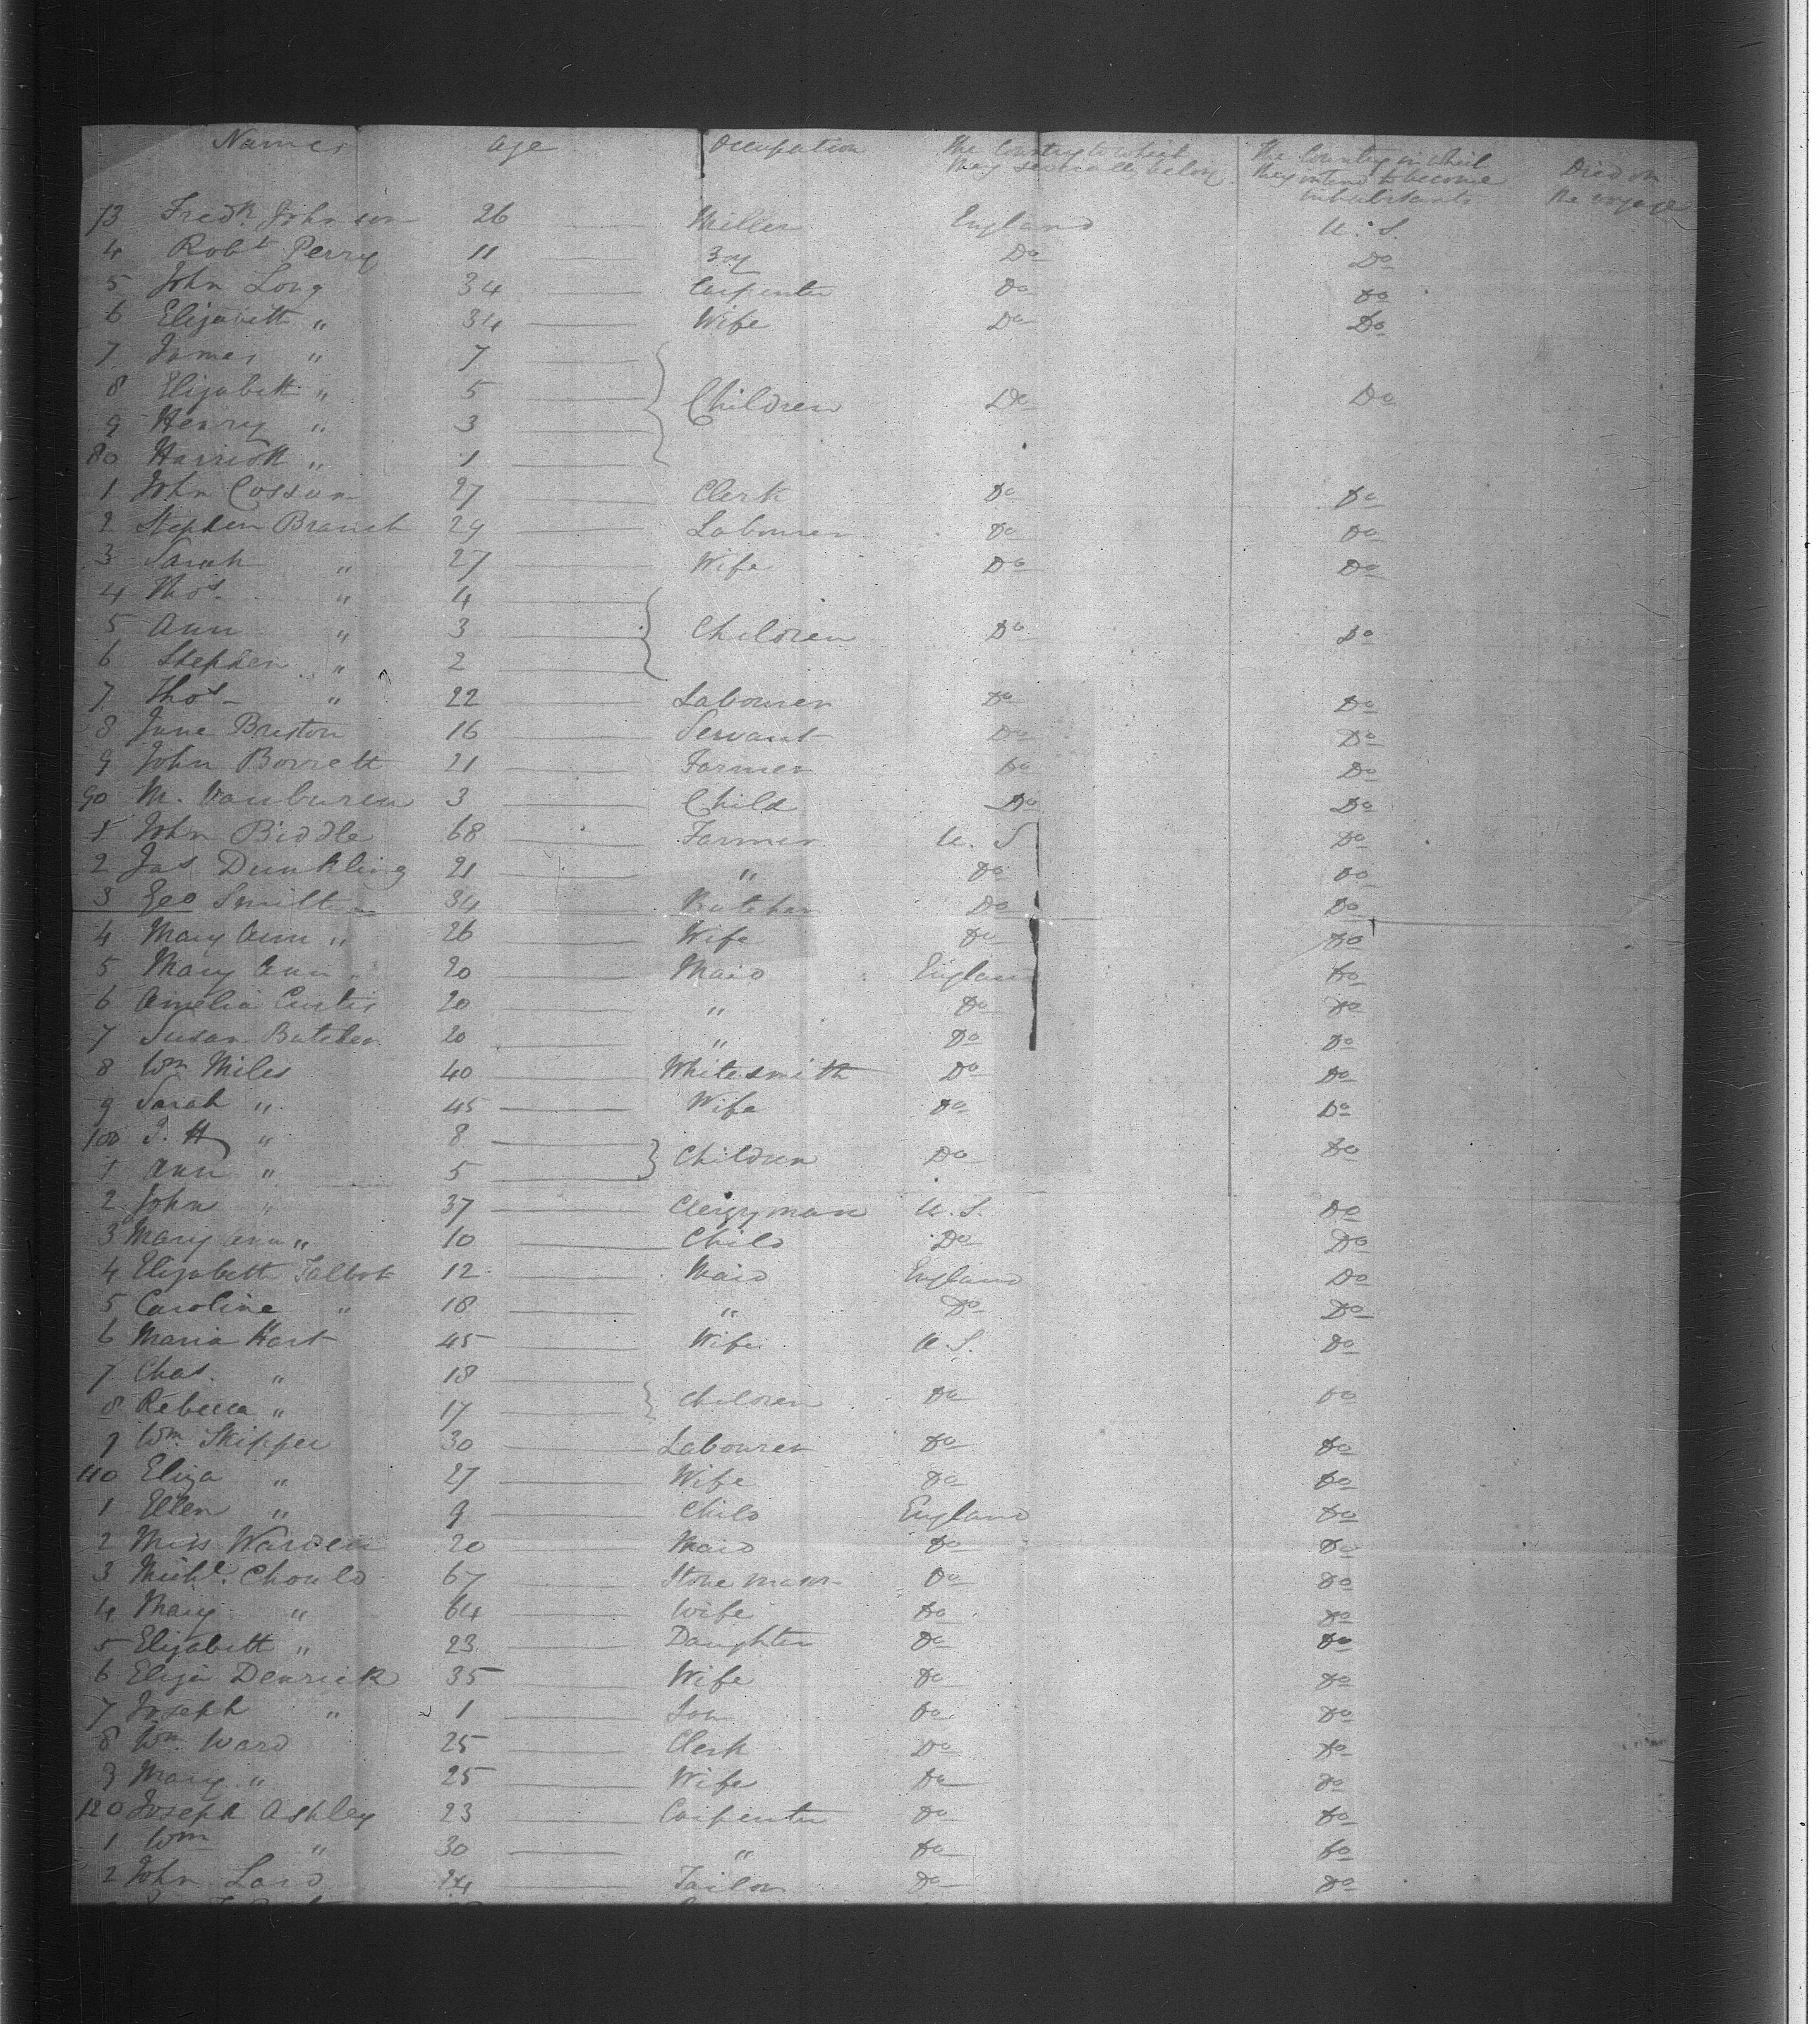 Names Age Occupation The Country to which they severally belong The Country in which they intend to become inhabitants Died on the voyage
73 Fredk Johnson 26 Miller England U.S.
4 Robt Perry 11 Boy Do Do
5 John Long 34 Carpenter Do Do
6 Elizabeth " 34 Wife Do Do
7 James " 7
8 Elizabeth " 5 Children Do Do
9 Henry " 3
80 Harriott " 1
1 John 27 Clerk Do Do
2 Stephen Branch 29 Labourer Do Do
3 Sarah " 27 Wife Do Do
4 Thos " 4
5 Ann " 3 Children Do Do
6 Stephen " 2
7 Thos " 22 Labourer Do Do
8 Jane 16 Servant Do Do
9 John Borrett 21 Farmer Do Do
90 M. Vanburen 3 Child Do Do
1 John Biddle 68 Farmer U.S Do
2 Jas Dunkling 21 " Do Do
3 Geo Smith 34 Butcher Do Do
4 Mary Ann " 26 Wife Do Do
5 Mary Ann " 20 Maid England Do
6 Amelia Curtis 20 " Do Do
7 Susan Butcher 20 " Do Do
8 Wm Miles 40 Whitesmith Do Do
9 Sarah " 45 Wife Do Do
100 J. H " 8 Children Do Do
1 Ann " 5
2 John " 37 Clergyman U.S. Do
3 Mary Ann " 10 Child Do Do
4 Elizabeth Talbot 12 Maid England Do
5 Caroline " 18 " Do Do
6 Maria Hart 45 Wife U.S. Do
7 Chas. " 18 Children Do Do
8 Rebecca " 17
9 Wm. Skipper 30 Labourer Do Do
110 Eliza " 27 Wife Do Do
1 Ellen " 9 Child England Do
2 Miss Warden 20 Maid Do Do
3 Michl. Chould 67 Stone mason Do Do
4 Mary " 64 Wife Do Do
5 Elizabeth " 23 Daughter Do Do
6 Eliza Denrick 35 Wife Do Do
7 Joseph " 1 Son Do Do
8 Wm Ward 25 Clerk Do Do
9 Mary " 25 Wife Do Do
120 Joseph Ashley 23 Carpenter Do Do
1 Wm " 30 " Do Do
2 John Lard 24 Tailor Do Do